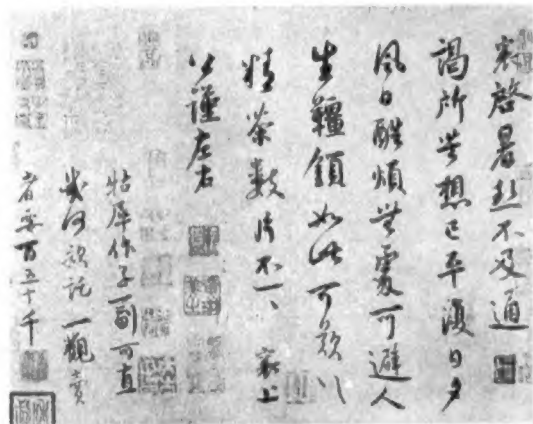 襄啓暑熱不及通
謁所苦想已平復日夕
風日酷煩無處可避人
生韁鎖如此可歎以
精茶數片不一一襄上
公謹左右
牯犀作子一副可直
幾何欲託一觀賣
者要百五十千